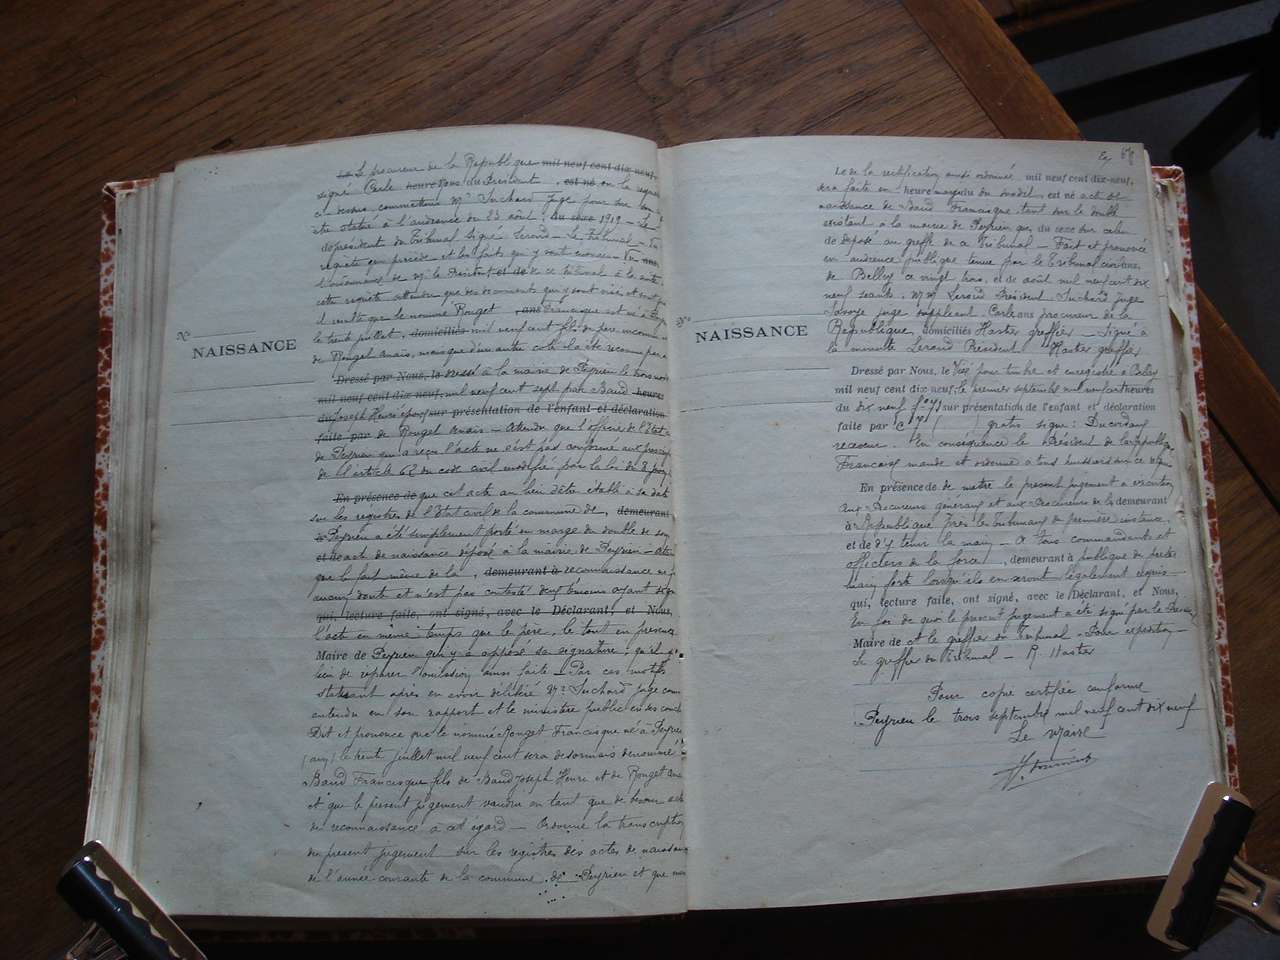 Le procureur de la République mil neuf cent dix-neuf
signé Carle heure Nous du Président , est né en la requête
ci-dessus, commettons Mr Suchard Juge pour son
être statué à l'audience du 23 août, du sexe 1919 - Le
Président du Tribunal Signé Lerand - Le Tribunal - Vu
requête qui précède et les faits qui y sont
l'ordonnance de M. le Président et de ce Tribunal à la suite
cette requête attendu que des documents qui y sont visé et
il résulte que le nommé Rouget , ans Francisque est né à
le trente juillet, domiciliés mil neuf cent fils de père inconnu
de Rouget Anaïs, mais que d'un autre coté il a été reconnu par
N°
NAISSANCE
Dressé par Nous, le Dressé à la mairie de Peyrieu le trois
mil neuf cent dix-neuf, mil neuf cent sept par Baud heures
du Joseph Henri époux sur présentation de l'enfant et déclaration
faite par de Rouget Anaïs - Attendu que l'officier de l'Etat
de Peyrieu qui a reçu l'acte ne s'est pas conformé aux
de l'article 62 du code civil modifié par la loi du 8
En présence de que cet acte au lieu d'être établi à sa date
sur les registres de l'Etat civil de la commune de , demeurant
à Peyrieu a été simplement porté en marge du double de son
et de acte de naissance déposé à la mairie de Peyrieu -
que le fait même de la , demeurant à reconnaissance ne
aucun doute et n'est pas contesté deux témoins ayant
qui, lecture faite, ont signé, avec le Déclarant, et Nous,
l'acte en même temps que le père, le tout en présence
Maire de Peyrieu qui y a apposé sa signature; qu'il
lieu de réparer l'omission ainsi faite - Par ces motifs
statuant après en avoir délibéré Mr Suchard juge
entendu en son rapport et le ministère public en ses
Dit et prononce que le nommé Rouget Francisque né à Peyrieu
(Ain) le trente juillet mil neuf cent sera désormais dénommé
Baud Francisque fils de Baud Joseph Henri et de Rouget
et que le présent jugement vaudra en tant que de besoin acte
de reconnaissance à cet égard - Ordonne la transcription
du présent jugement sur les registres des actes de naissance
de l'année courante de la commune de Peyrieu et que
67
Le de la rectification ainsi ordonnée, mil neuf cent dix-neuf,
sera faite en heure marge du susdit, est né acte de
naissance de Baud Francisque, tant sur le double
existant à la mairie de Peyrieu que, du sexe sur celui
de déposé au greffe de ce Tribunal - Fait et prononcé
en audience publique tenue par le Tribunal civil
de Belley ce vingt trois, et de août mil neuf cent dix
neuf séants: MM Lerand Président Suchard juge
Savoye juge suppléant. Carle procureur de la
République, domiciliés Harter greffier - Signé à
la minute Lerand Président Harter greffier
N°
NAISSANCE
Dressé par Nous, le Visé pour timbre et enregistré à Belley
mil neuf cent dix-neuf, le premier septembre mil neuf cent heures
du dix neuf sur présentation de l'enfant et déclaration
faite par gratis signé:
receveur. En conséquence le Président de la République
Française mande et ordonne à tous huissiers sur ce requis
En présence de de mettre le présent jugement à exécution
aux Procureurs généraux et aux Procureurs de la demeurant
à République Près les Tribunaux de première instance
et de d'y tenir la main - A tous commandants et
officiers de la force , demeurant à publique de prêter
main forte lorsqu'ils en seront légalement requis
qui, lecture faite, ont signé, avec le Déclarant, et Nous,
En foi de quoi le présent jugement a été signé par le
Maire de et le greffier du Tribunal - Pour expédition -
Le greffier du Tribunal - R. Harter
Pour copie certifiée conforme
Peyrieu le trois septembre mil neuf cent dix neuf
Le Maire